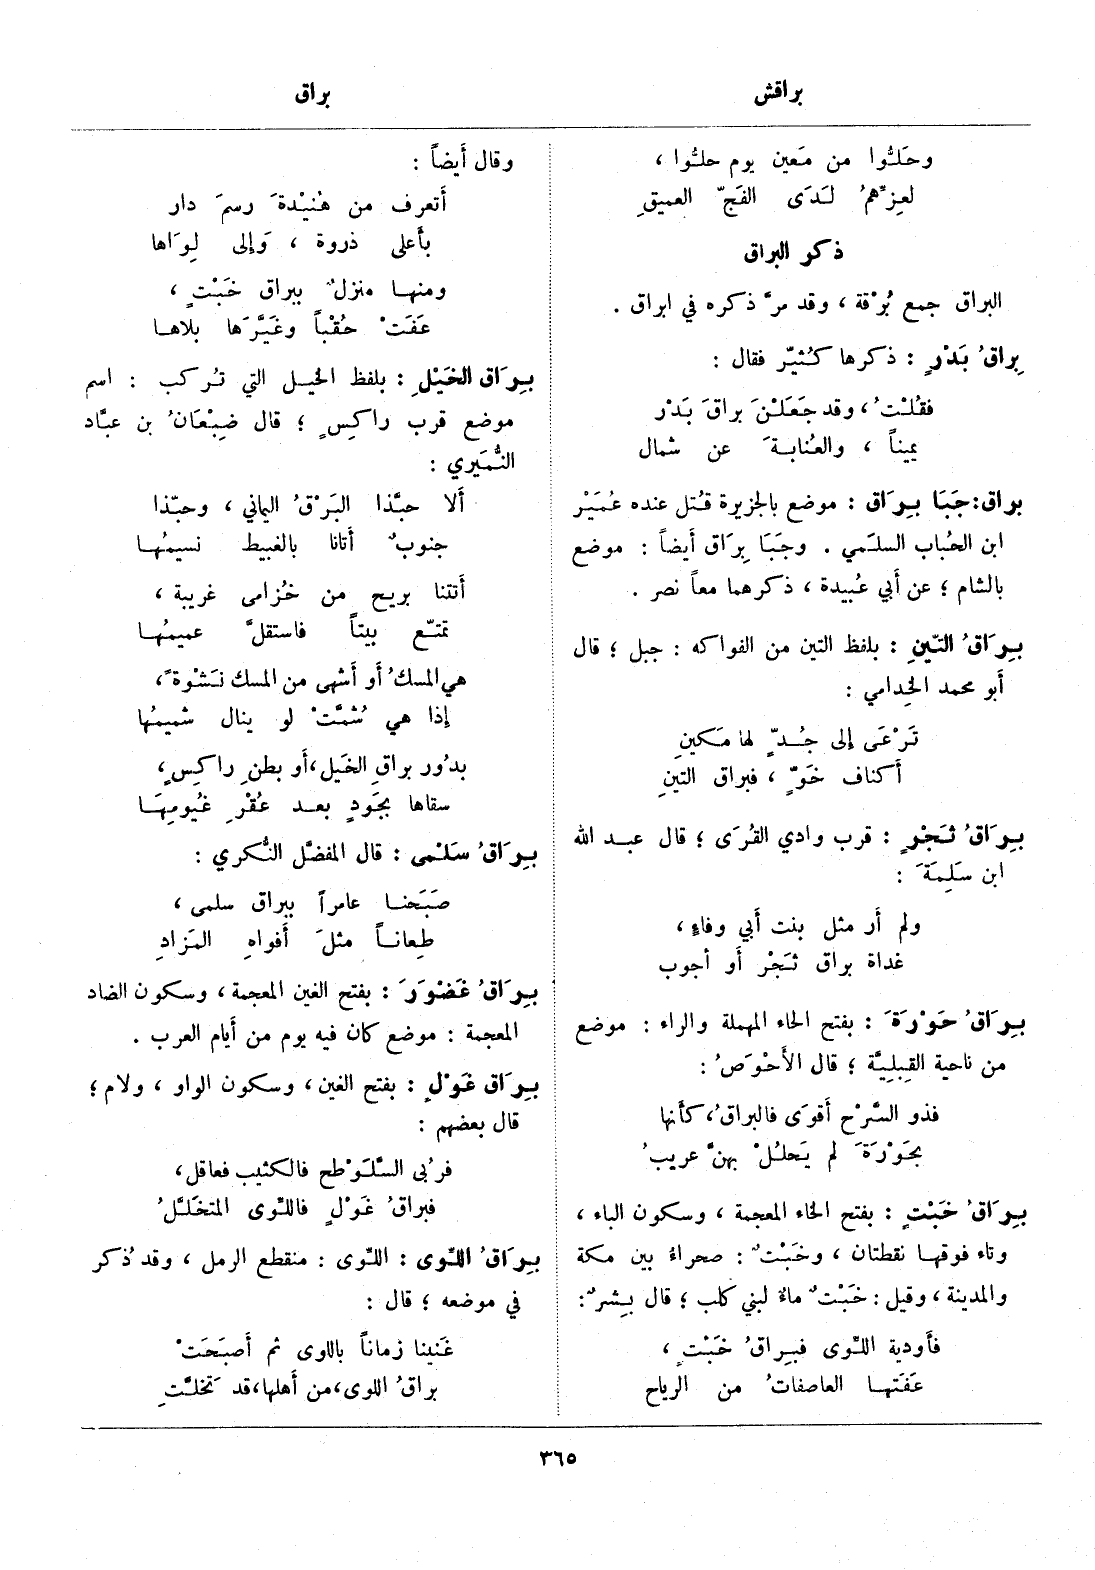 براقش
براق
وحَلُّوا من مَعين يوم حلُّوا ،
لعِزّهمُ لَدَى الفَجّ العميقِ
ذكر البراق
البراق جمع بُرْقة ، وقد مرَّ ذكره في ابراق .
بِراقُ بَدْرٍ : ذكرها كُثيّر فقال :
فقُلْتُ ، وقد جَعَلْنَ براقَ بَدْر
يميناً ، والعُنابةَ عن شمال
براق: جَبَا بِرَاق : موضع بالجزيرة قُتل عنده عُمَيْر
ابن الحُباب السلَمي . وجَبَا بِرَاق أيضاً : موضع
بالشام ؛ عن أبي عُبيدة ، ذكرهما معاً نصر .
بِرَاقُ التّينِ : بلفظ التين من الفواكه : جبل ؛ قال
أبو محمد الخدامي :
تَرْعَى إلى جُدٍّ لها مَكينِ
أكناف خَوٍّ ، فبراق التينِ
بِرَاقُ ثَجْرٍ : قرب وادي القُرَى ؛ قال عبد الله
ابن سَلِمَةَ :
ولم أر مثل بنت أبي وفاءٍ ،
غداة براق ثَجْر أو أجوب
بِرَاقُ حَوْرَةَ : بفتح الحاء المهملة والراء : موضع
من ناحية القِبِليَّة ؛ قال الأَحْوَصُ :
فذو السَّرْح أقوَى فالبراقُ، كأنها
بحَوْرَةَ لم يَحلُلْ بهنَّ عريبُ
بِرَاقُ خَبْتٍ : بفتح الخاء المعجمة ، وسكون الباء ،
وتاء فوقها نقطتان ، وخَبْتٌ : صحراءُ بين مكة
والمدينة ، وقيل : خَبْتٌ ماءٌ لبني كلب ؛ قال بِشرٌ :
فأودية اللّوى فبِراقُ خَبْتٍ ،
عَفَتَها العاصفاتُ من الرياح
وقال أيضاً :
أتعرف من هُنيْدةَ رسمَ دار
بأعلى ذروة ، وَإلى لِوَاها
ومنها منزلٌ ببراق خَبْتٍ ،
عَفَتْ حُقْباً وغَيَّرَها بلاها
بِرَاق الخَيْلِ : بلفظ الخيل التي تُركب : اسم
موضع قرب راكِسٍ ؛ قال ضِبْعَانُ بن عبَّاد
النُّمَيري :
ألا حبَّذا البَرْقُ اليماني ، وحبّذا
جنوبٌ أتانا بالغبيط نسيمُها
أتتنا بريح من خُزامى غريبة ،
تمتّع بيتاً فاستقلَّ عميمُها
هي المسكُ أو أشهى من المسك نَشْوةً ،
إذا هي شُمَّتْ لو ينال شميمُها
بدُور براقِ الخَيل ، أو بطنِ راكِسٍ ،
سقاها بجَودٍ بعد عُقْرٍ غُيومِهَا
بِرَاقُ سَلْمى : قال المفضّل النُّكري :
صَبَحَنا عامراً ببراق سلمى ،
طِعاناً مثلَ أفواهِ المَزادِ
بِرَاقُ غَضْوَرَ : بفتح الغين المعجمة ، وسكون الضاد
المعجمة : موضع كان فيه يوم من أيام العرب .
بِرَاق غَوْلٍ : بفتح الغين ، وسكون الواو ، ولام ؛
قال بعضهم :
فرُبى السَّلَوْطح فالكثيب فعاقل،
فبراقُ غَوْلٍ فاللّوى المتخلَّلُ
بِرَاقُ اللّوى : اللّوى : منقطع الرمل ، وقد ذُكر
في موضعه ؛ قال :
غَنينا زماناً باللوى ثم أصبَحَتْ
براقُ اللوى، من أهلها، قد تَخلَّتِ
٣٦٥